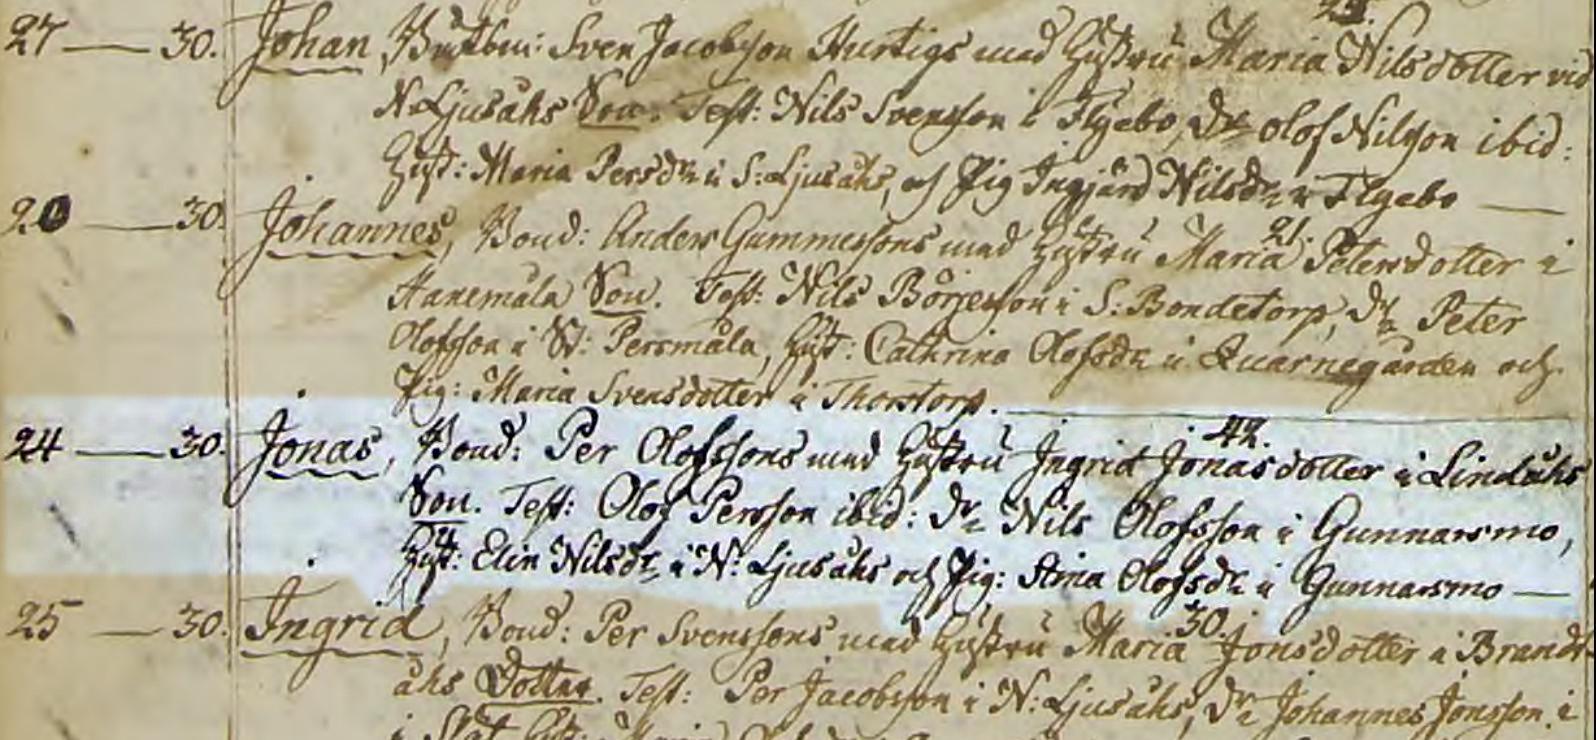 25.
27 — 30. Johan, Sven Jacobsson Hurtigs med Hustru Maria Nilsdotter vid
N. Ljusåhs Son. Test: Nils Svensson i Flyebo, Dr Olof Nilsson ibid:
Hust: Maria Persdr i S: Ljusåhs, och Pig Ingjärd Nilsdr i Flyebo —
20 — 30. Johannes, Bond: Anders Gummessons med Hustru Maria Petersdotter i
21.
Hanemåla Son. Test: Nils Börjesson i S: Bondetorp, Dr Peter
Olofsson i St: Persmåla, Hust: Cathrina Olofsdr i Quarnegården och
Pig: Maria Svensdotter i Thorstorp. —
42.
24 — 30. Jonas, Bond: Per Olofssons med Hustru Ingrid Jonasdotter i Lindåhs
Son. Test: Olof Persson ibid: Dr Nils Olofsson i Gunnarsmo,
Hust: Elin Nilsdr i N: Ljusåhs och Pig: Stina Olofsdr i Gunnarsmo —
30.
25 — 30. Ingrid, Bond: Per Svenssons med Hustru Maria Jonsdotter i Brand-
åhs Dotter. Test: Per Jacobsson i N: Ljusåhs, Dr Johannes Jonsson i
i Slät